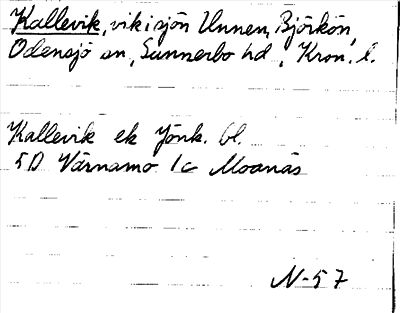 Kallevik, vik i sjön Unnen, Björkön,
Odensjö sn, Sunnerbo hd, Kron. l.
Kallevik ek Jönk. bl.
5D Värnamo 1c Moanäs
N-57